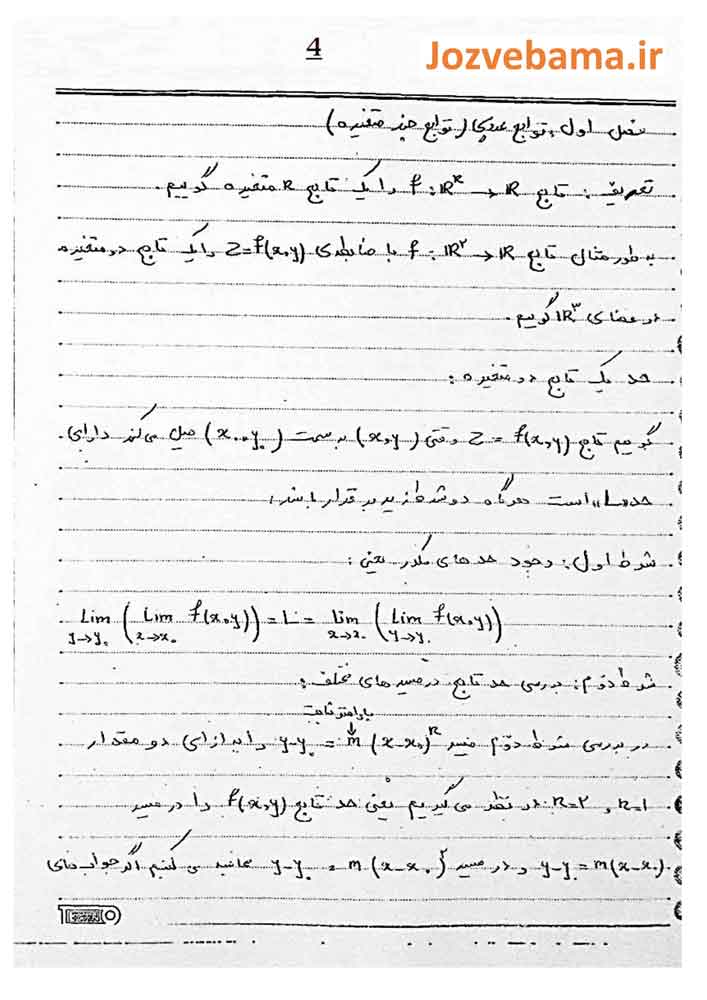 4
Jozvebama.ir
فصل اول: توابع عددی (توابع چند متغیره)
تعریف: تابع f: IRⁿ → IR را یک تابع n متغیره گوییم.
به طور مثال تابع f: IR² → IR با ضابطه‌ی Z=f(x,y) را یک تابع دو متغیره
در فضای IR³ گوییم.
حد یک تابع دو متغیره:
گوییم تابع Z = f(x,y) وقتی (x,y) به سمت (x₀,y₀) میل می‌کند دارای
حد "L" است هرگاه دو شرط زیر برقرار باشد:
شرط اول: وجود حدهای مکرر یعنی:
Lim y→y₀ (Lim x→x₀ f(x,y)) = L = Lim x→x₀ (Lim y→y₀ f(x,y))
شرط دوّم: بررسی حد تابع در مسیرهای مختلف:
پارامتر ثابت
در بررسی شرط دوّم مسیر y-y₀ = m(x-x₀)ⁿ را به ازای دو مقدار
n=1 , n=۲ در نظر می‌گیریم یعنی حد تابع f(x,y) را در مسیر
y-y₀ = m(x-x₀) و در مسیر y-y₀ = m(x-x₀)² محاسبه می‌کنیم اگر جواب‌های